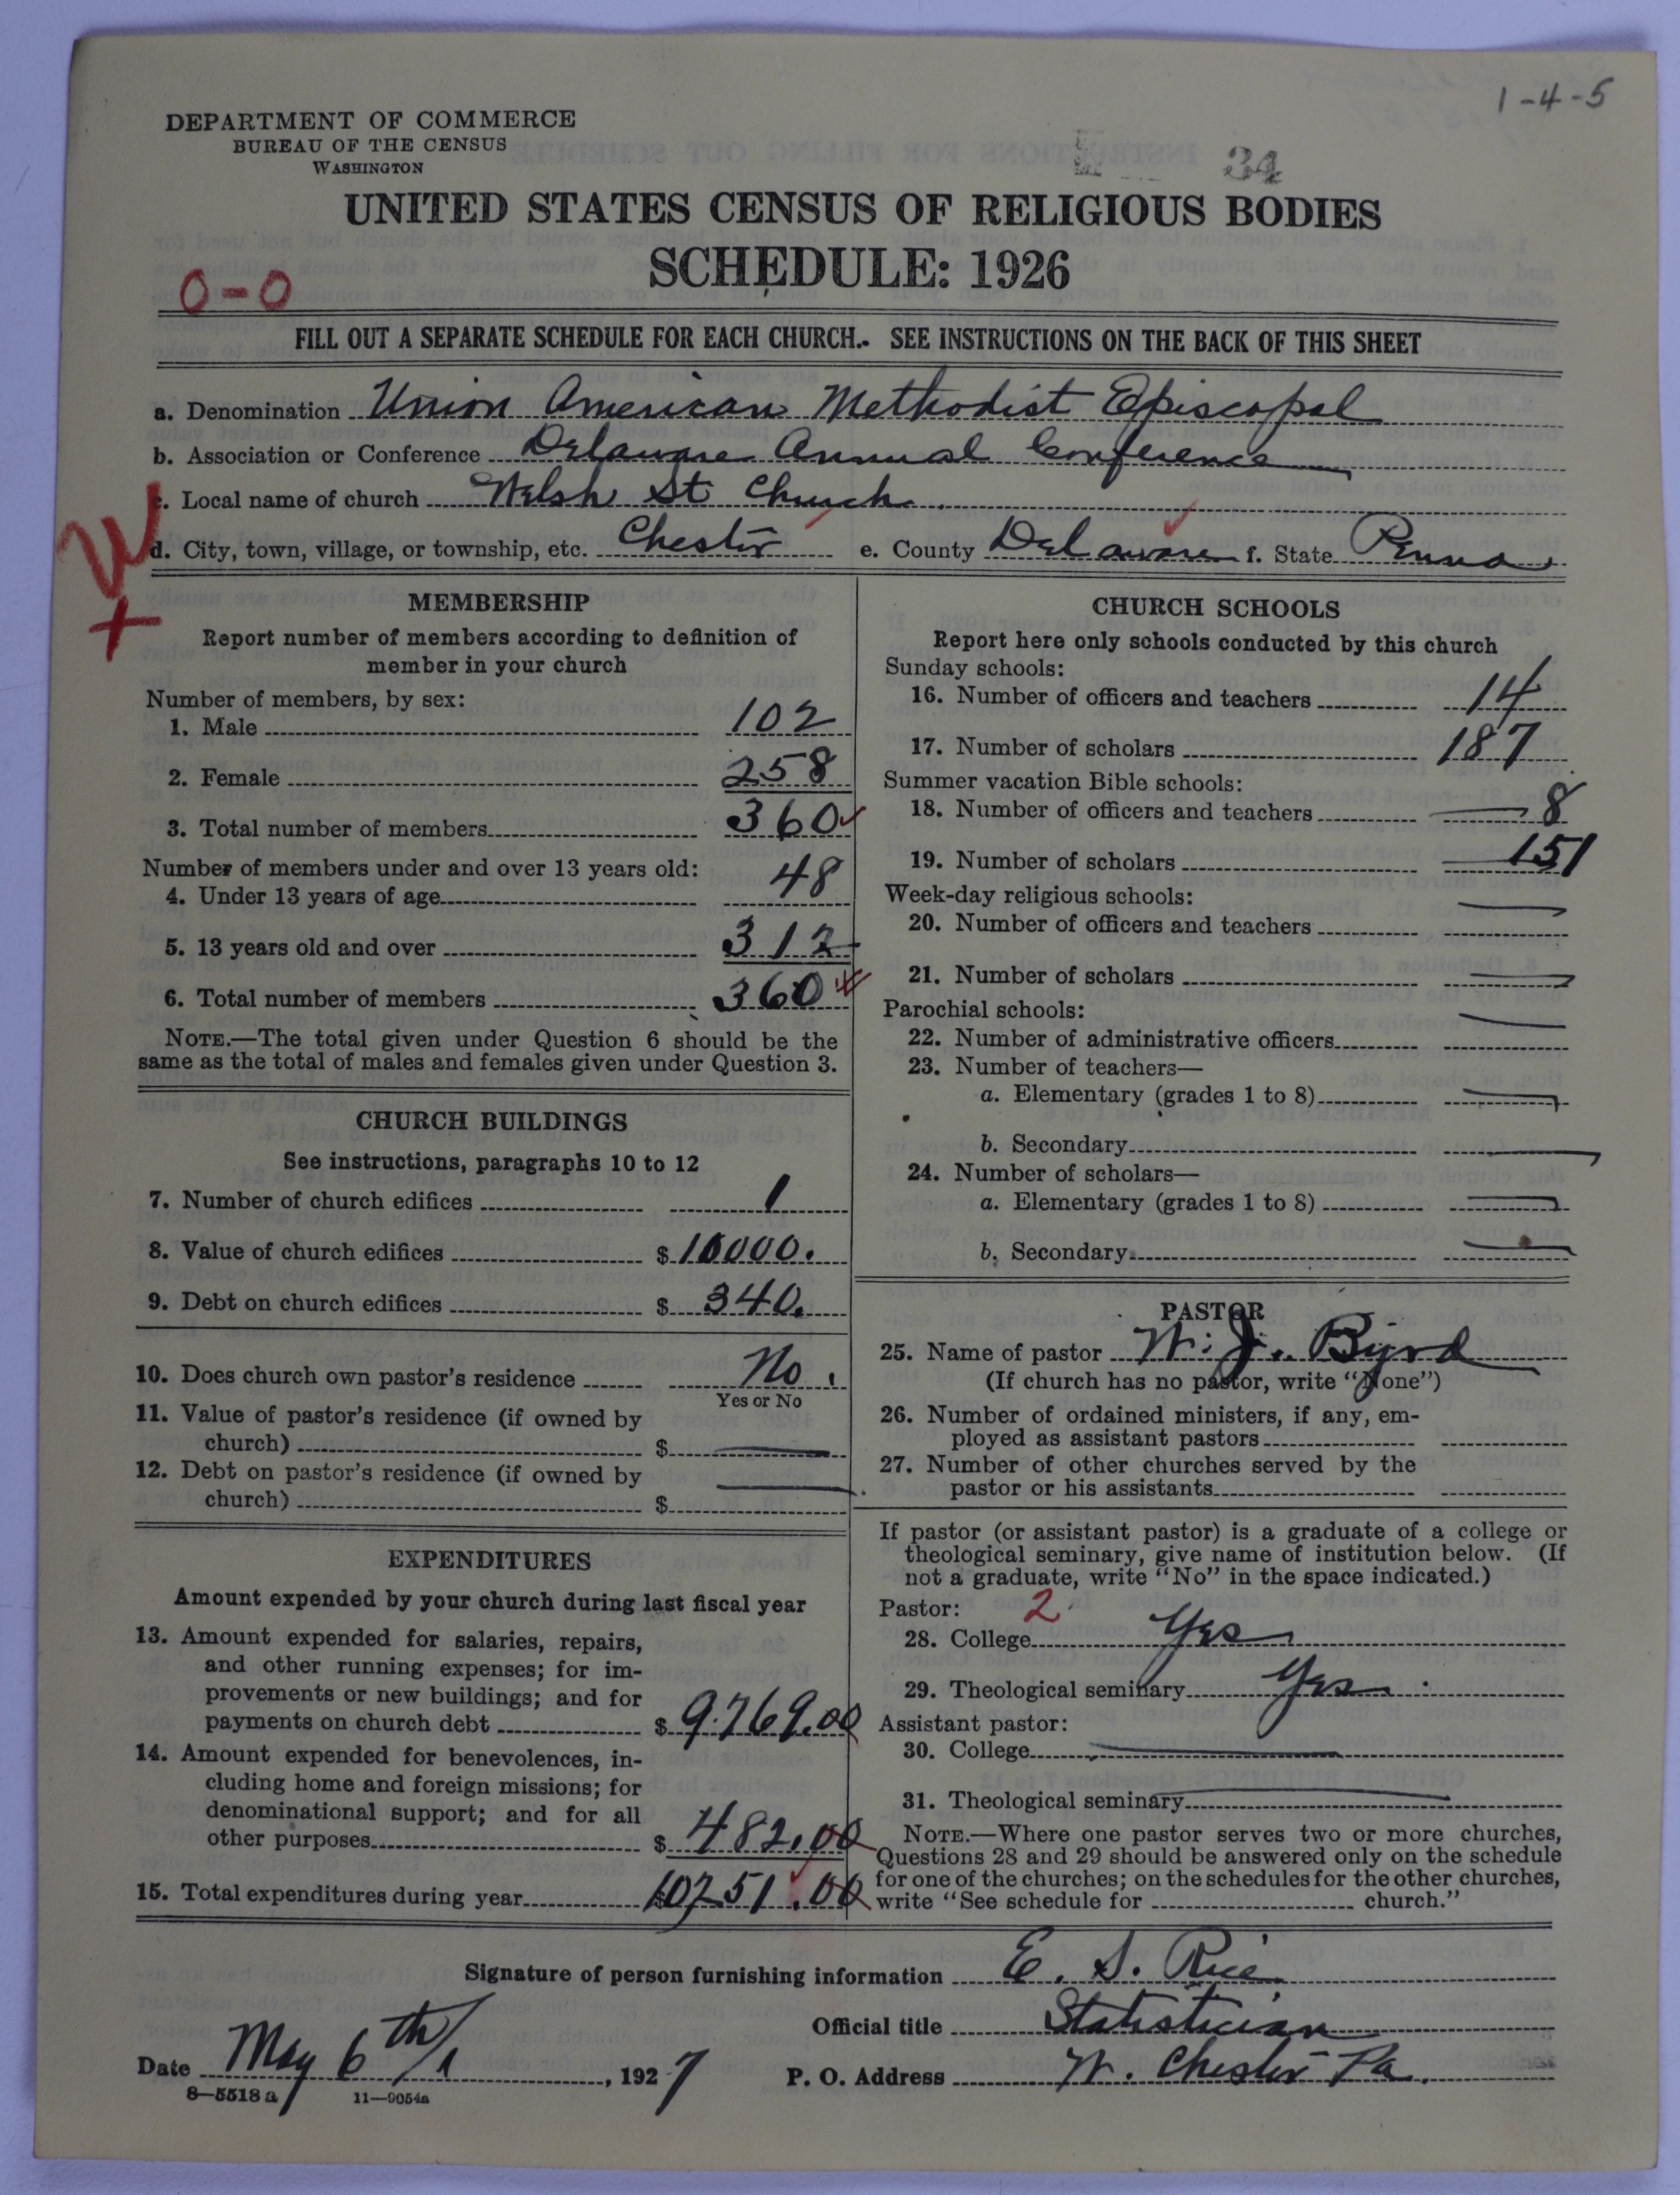 1-4-5
DEPARTMENT OF COMMERCE
BUREAU OF THE CENSUS
WASHINGTON
34
UNITED STATES CENSUS OF RELIGIOUS BODIES
SCHEDULE: 1926
0-0
FILL OUT A SEPARATE SCHEDULE FOR EACH CHURCH. SEE INSTRUCTIONS ON THE BACK OF THIS SHEET
a. Denomination Union American Methodist Episcopal
b. Association or Conference Delaware Annual Conference
c. Local name of church Welsh St Church.
d. City, town, village, or township, etc. Chester e. County Delaware f. State Penna
W
+
MEMBERSHIP
Report number of members according to definition of
member in your church
Number of members, by sex:
1. Male 102
2. Female 258
3. Total number of members 360
Number of members under and over 13 years old:
4. Under 13 years of age 48
5. 13 years old and over 312
6. Total number of members 360
NOTE.—The total given under Question 6 should be the
same as the total of males and females given under Question 3.
CHURCH BUILDINGS
See instructions, paragraphs 10 to 12
7. Number of church edifices 1
8. Value of church edifices $ 10000.
9. Debt on church edifices $ 340.
10. Does church own pastor's residence No.
Yes or No
11. Value of pastor's residence (if owned by
church) $ —
12. Debt on pastor's residence (if owned by
church) $ —
EXPENDITURES
Amount expended by your church during last fiscal year
13. Amount expended for salaries, repairs,
and other running expenses; for im-
provements or new buildings; and for
payments on church debt $ 9769.00
14. Amount expended for benevolences, in-
cluding home and foreign missions; for
denominational support; and for all
other purposes $ 482.00
15. Total expenditures during year 10251.00
CHURCH SCHOOLS
Report here only schools conducted by this church
Sunday schools:
16. Number of officers and teachers 14
17. Number of scholars 187
Summer vacation Bible schools:
18. Number of officers and teachers — 8
19. Number of scholars — 151
Week-day religious schools:
20. Number of officers and teachers —
21. Number of scholars —
Parochial schools:
22. Number of administrative officers —
23. Number of teachers—
a. Elementary (grades 1 to 8) —
b. Secondary —
24. Number of scholars—
a. Elementary (grades 1 to 8) —
b. Secondary —
PASTOR
25. Name of pastor W. J. Byrd
(If church has no pastor, write "None")
26. Number of ordained ministers, if any, em-
ployed as assistant pastors
27. Number of other churches served by the
pastor or his assistants
If pastor (or assistant pastor) is a graduate of a college or
theological seminary, give name of institution below. (If
not a graduate, write "No" in the space indicated.)
Pastor: 2
28. College Yes
29. Theological seminary Yes
Assistant pastor:
30. College —
31. Theological seminary —
NOTE.—Where one pastor serves two or more churches,
Questions 28 and 29 should be answered only on the schedule
for one of the churches; on the schedules for the other churches,
write "See schedule for church."
Signature of person furnishing information E. S. Rice
Official title Statistician
Date May 6th, 1927 P. O. Address W. Chester Pa.
8—5518 a 11—9054a